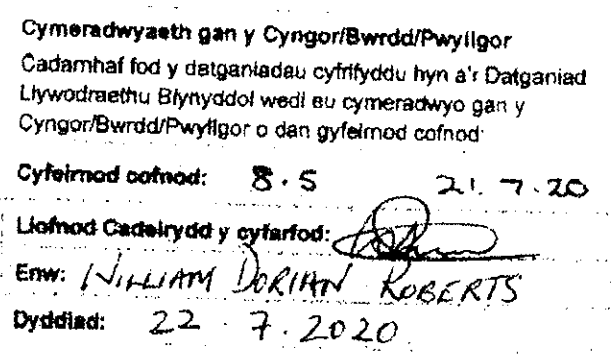 Cymeradwyaeth gan y Cyngor/Bwrdd/Pwyllgor
Cadarnhaf fod y datganiadau cyfrifyddu hyn a'r Datganiad
Llywodraethu Blynyddol wedi eu cymeradwyo gan y
Cyngor/Bwrdd/Pwyllgor o dan gyfeirnod cofnod:
Cyfeirnod cofnod: 8.5 21.7.20
Llofnod Cadeirydd y cyfarfod:
Enw: WILLIAM DORIAN ROBERTS
Dyddiad: 22.7.2020